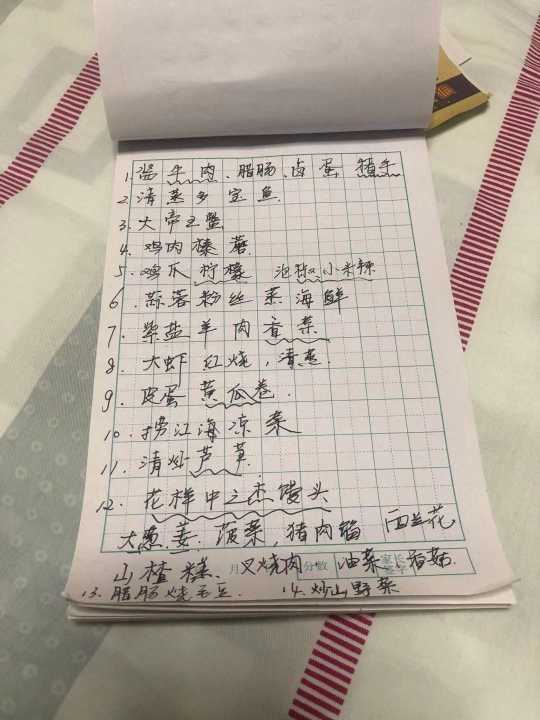 1. 酱牛肉、腊肠、卤蛋 猪手
2. 清蒸多宝鱼
3. 大帝王蟹
4. 鸡肉榛蘑
5. 鸡爪 柠檬 泡椒 小米辣
6. 蒜蓉粉丝蒸海鲜
7. 紫盐羊肉香菜
8. 大虾红烧，清蒸
9. 皮蛋黄瓜卷
10. 捞江海凉菜
11. 清炒芦草
12. 花样中之杰馒头
大葱姜. 菠菜，猪肉馅 西兰花
山楂糕. 月 叉烧肉 分数 油菜 香菇.
13. 腊肠烧毛豆. 14. 炒山野菜